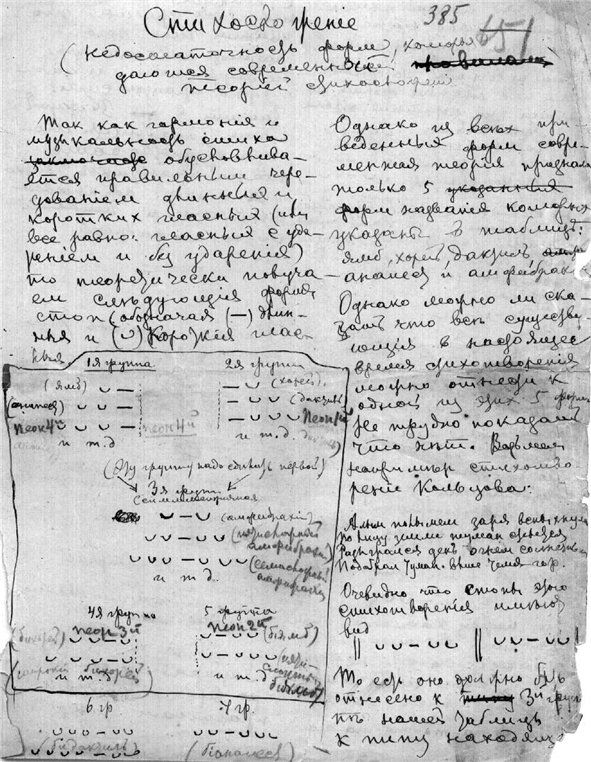 Стихосложеніе
385
651
(недостаточность форм, которыя
даются современной
теоріей стихосложенія)
Так как гармонія и
музыкальность стиха
обусловлива-
ется правильным чере-
дованіем длинных и
коротких гласных (или
все равно: гласных с уда-
реніем и без ударенія)
то теоретически получа-
ем следующія формы
стоп (обозначая (—) длин-
ныя и (∪) короткія глас-
ныя
1я группа
(ямб) ∪ —
(анапест) ∪ ∪ —
пеон 4й ∪ ∪ ∪ —
пеон 4й
и т.д.
2я группа
— ∪ (хорей)
— ∪ ∪ (дактиль)
— ∪ ∪ ∪ пеон 1й
и т.д.
(2ую группу надо сблизить первой)
3я групп.
Семмметричная
∪ — ∪ (амфибрахій)
∪ ∪ — ∪ ∪
∪ ∪ ∪ — ∪ ∪ ∪
и т.д.
4я группа
пеон 3й
(бихорей)
и т.д.
5 группа
пеон 2й
(біямб)
и т.д.
6 гр
(бидактиль)
7 гр.
(біанапест)
Однако из всех при-
веденных форм совре-
менная теорія признает
только 5 указанных
форм названія которых
указаны в таблице:
ямб, хорей, дактиль,
анапест и амфибрах
Однако можно ли ска-
зать что все существу-
ющія в настоящее
время стихотворенія
можно отнести к
одной из этих 5 форм
Не трудно показать
что нет. Возьмем
например стихотво-
реніе Кольцова:
Алым полымем заря вспыхнула
По лицу земли туман стелется
Разгорался день огнем солнечным
Подобрал туман выше темя гор.
Очевидно что стопы этого
стихотворенія имеют
вид
‖ ∪ ∪ — ∪ ∪ ‖ ∪ ∪ — ∪ ∪
То есть оно должно быть
отнесено к типу 3й груп
пе нашей таблицы
к типу находящ